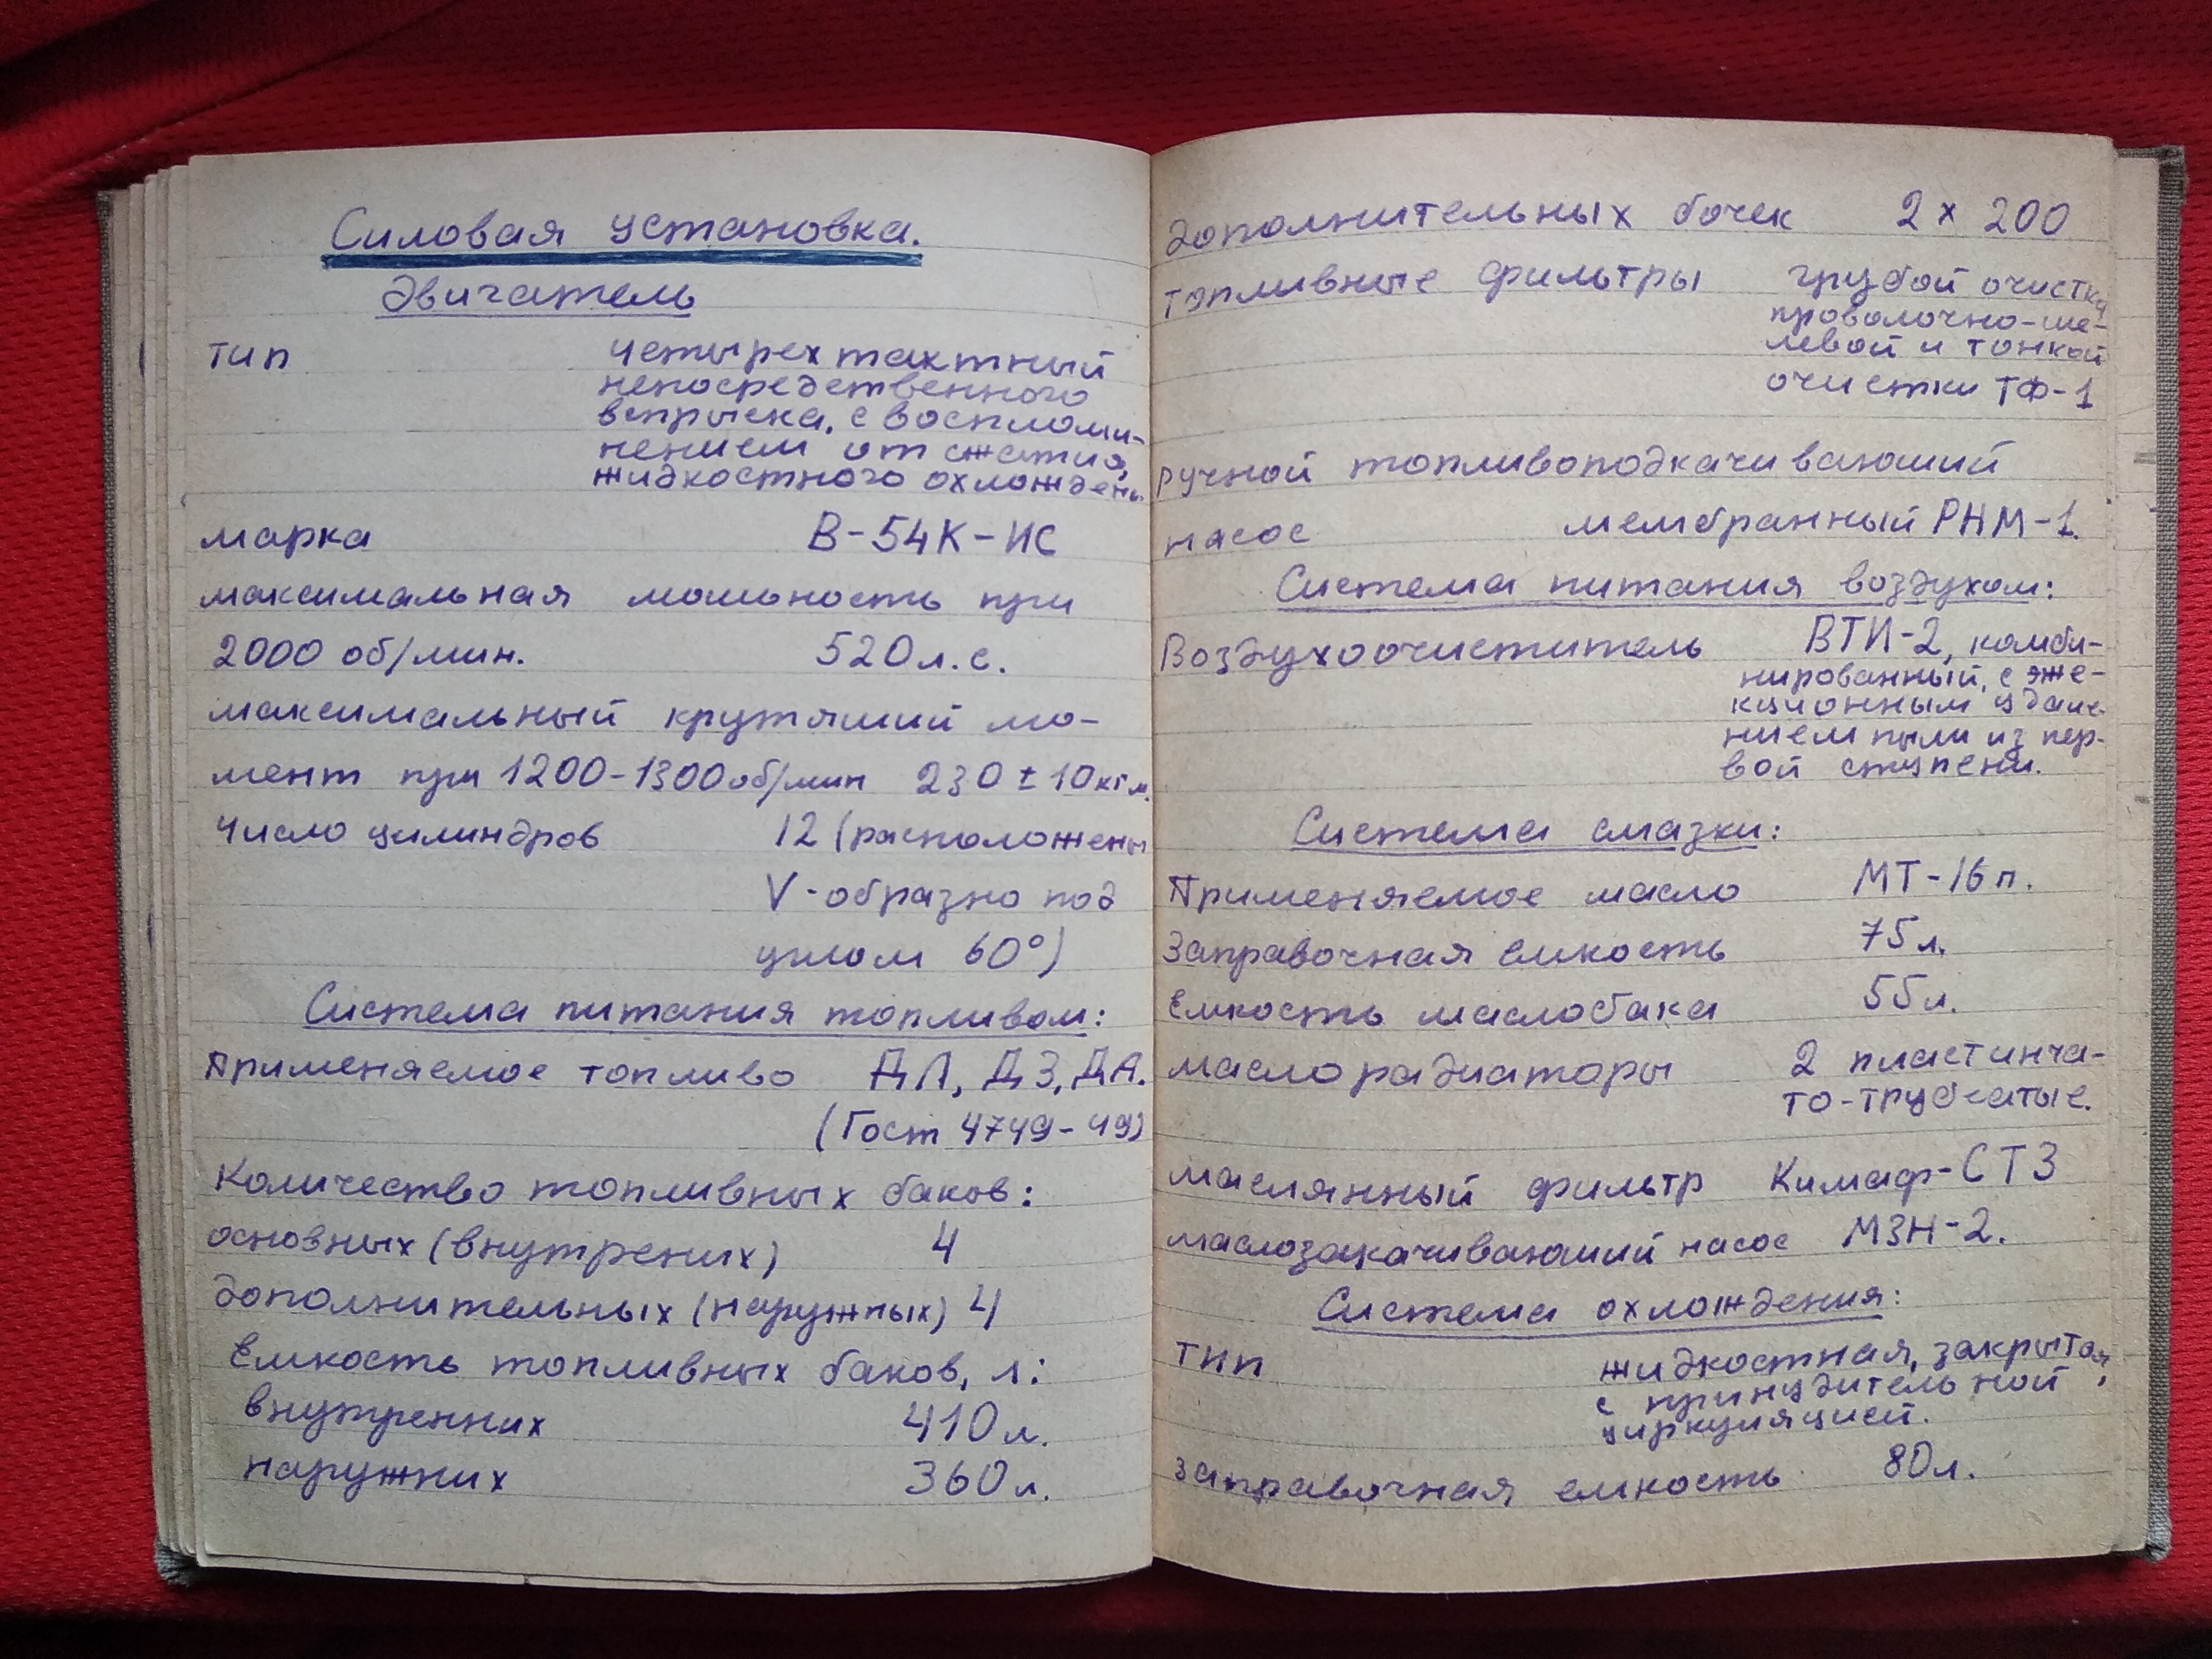 Силовая установка.
Двигатель
тип четырехтактный
непосредственного
впрыска, с восплами-
нением от сжатия,
жидкостного охлаждень.
марка В-54К-ИС
максимальная мошьность при
2000 об/мин. 520 л.с.
максимальный крутяший мо-
мент при 1200-1300 об/мин 230 ± 10 кгм.
Число цилиндров 12 (расположены
V-образно под
углом 60°)
Система питания топливом:
Применяемое топливо ДЛ, ДЗ, ДА.
(Гост 4749-49)
Количество топливных баков:
основных (внутрених) 4
дополнительных (наружных) 4
Емкость топливных баков, л:
внутренних 410 л.
наружних 360 л.
дополнительных бочек 2 х 200
топливные фильтры грубой очистки
проволочно-ше-
левой и тонкой
очистки ТФ-1
ручной топливоподкачиваюший
насос мембранный РНМ-1.
Система питания воздухом:
Воздухоочиститель ВТИ-2, комби-
нированный, с эже-
кционным удале-
нием пыли из пер-
вой ступени.
Система смазки:
Применяемое масло МТ-16п.
Заправочная емкость 75 л.
Емкость маслобака 55 л.
маслорадиаторы 2 пластинча-
то-трубчатые.
маслянный фильтр Кимаф-СТЗ
маслозакачиваюший насос МЗН-2.
Система охлаждения:
тип жидкостная, закрытая,
с принудительной
циркуляцией.
заправочная емкость 80 л.